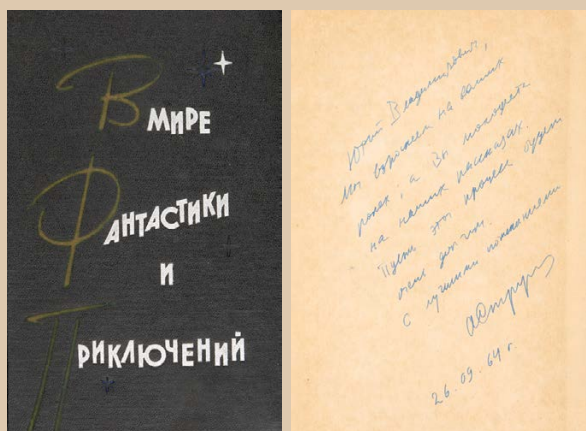 В МИРЕ
ФАНТАСТИКИ
И
ПРИКЛЮЧЕНИЙ
Юрий Владимирович,
Мы взрослеем на ваших
ролях, а Вы молодеете
на наших рассказах.
Пусть этот процесс будет
очень долгим.
С лучшими пожеланиями
26.09.64 г.